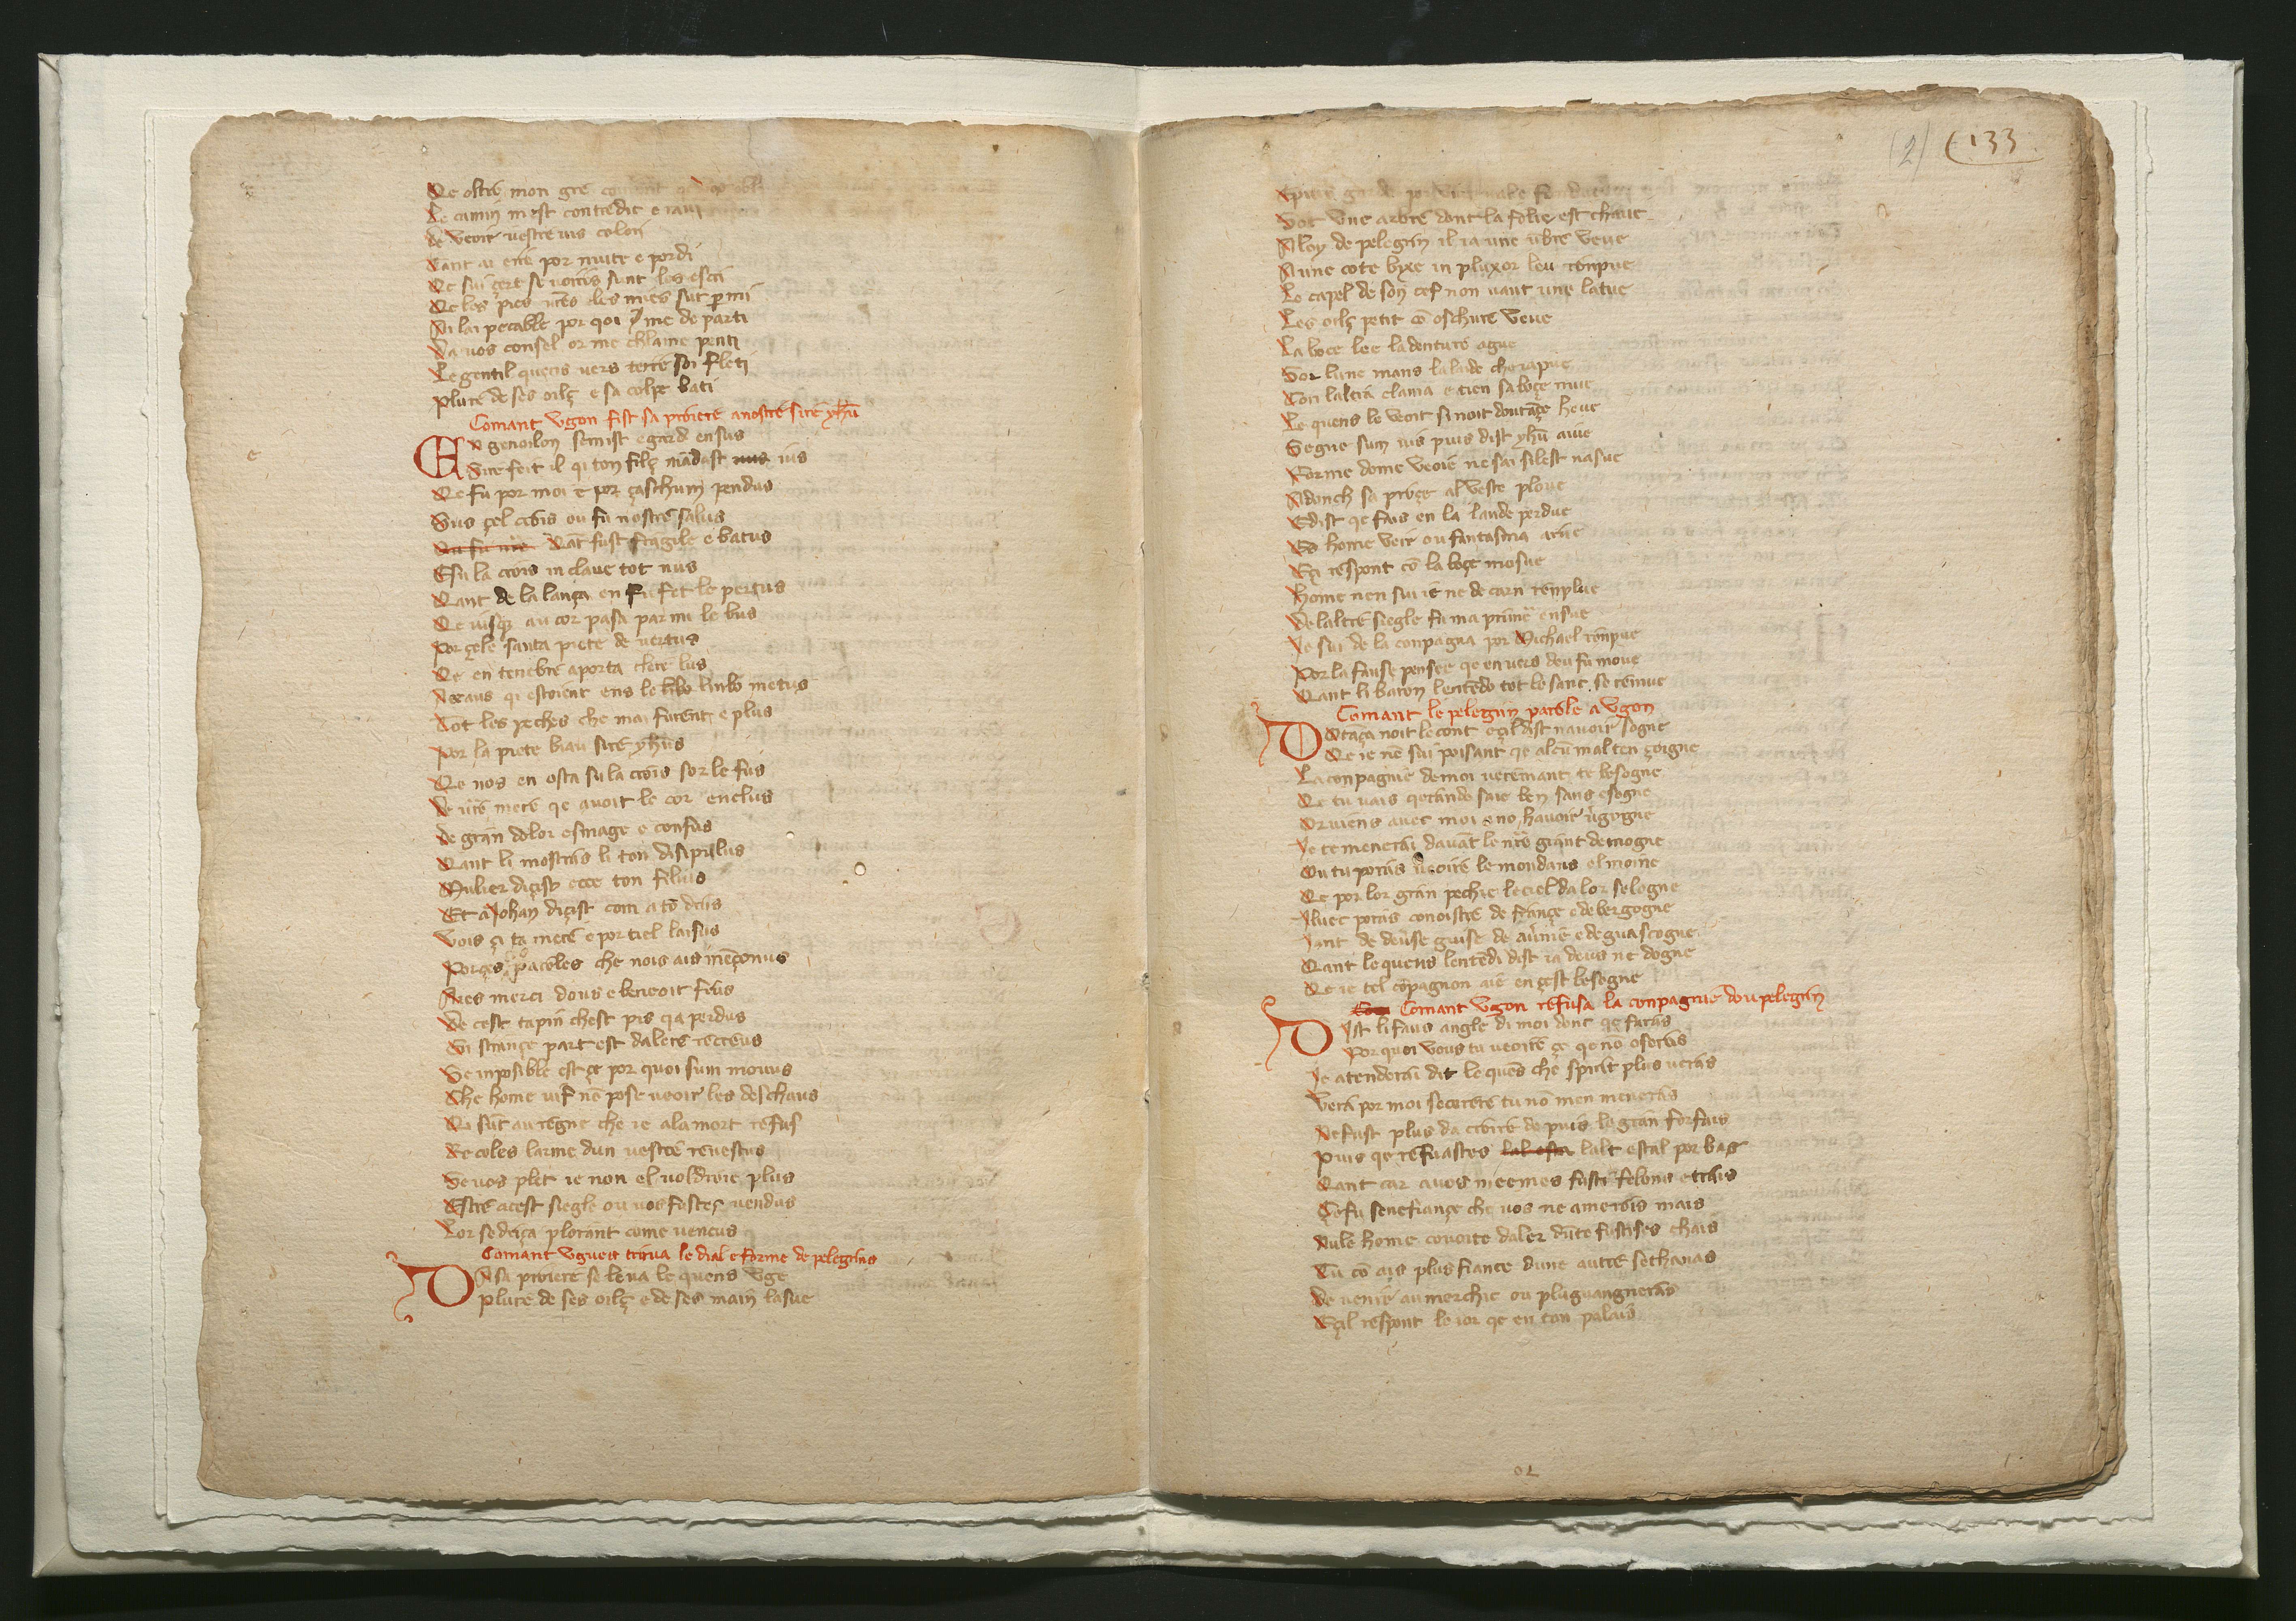 Qe oltre mon gre
Le camin mest contredit e
de veoir vestre uis colori
Tant ai erre por nuite e por di
Qe sui çere se uoires sunt les escri
Qe les pies ures les mies sut p mi
Ni lai pecable por qoi me de parti
Da uos consel or me chlame penti
Le gentil quens uers terre soi fleti
Plure de ses oilç e sa colpe bati
Comant Vgon fist sa proiere a nostre sire yhu
En genoilon semist e gard ensus
Sire feit il qi ton filç madast ius
Qe fu por moi e por çaschum pendus
Sus çel crois ou fu nostre salus
Tat fust fragile e batus
E su la crois in claue tot nus
Qant de la lança en fu fet le pertus
Qe iusqe au cor pasa par mi le bus
Por çele santa piete de uertus
Qe en tenebre aporta clere lus
A ceaus qi estoient ens le limbo metus
Tot les peches che mai furent e plus
Por la piete biau sire yhus
Qe nos en osta su la crois sor le fus
De ure mere qe auoit le cor enclus
de gran dolor esmage e confus
Qant li mostras li ton disipulus
Mulier diçist ecce ton filius
Et a Johan diçist com a to drus
Vois çi ta mere e por tiel laisus
Por ces paroles che nois ais mençonus
Aies merci dous e beneoit frus
De cest tapin chest pis qa perdus
Si strançe part est dalere recreus
Se inposible est çe por quoi sum mouus
Che home uif ne pose ueoir les deschaus
Qi sut au regne che ie a la mort refus
Recoles larme dun uestre reuestus
Se uos plet ie non el uoldroie plus
Estre a cest siegle ou uos festes uendus
Lor se driça plorant come uencus
Comant vgues troua le diale forme de pelegrins
Da sa proiere se leua le quens Vge
Plure de ses oilç e de ses main lasue
(2) 133
Sot vne arbre dont la folie est chaue
A loy de pelegrin il ia une ubre veue
A une cote byxe in pluxor leu ronpue
Le capel de son cef non uaut une latue
Les oilç petit e oschure veue
La boce lee la denture ague
Sor lune mans la laide che rapue
Con laltra clama e tien sa boçe mue
Le quens le veoit si noit doutançe heue
Segne sum uis puis dist yhu aiue
Forme dome veoie ne sai silest nasue
Adonch sa proçe al veste plore
E dist qe fais en la lande perdue
Es home veir ou fantasma arue
E çi respont co la boçe mosue
Home nen sui ie ne de carn renplue
De laltre siegle fu ma prime ensue
Je sui de la conpagna por Michael ronpue
Por la fause pensee qe en uers deu fu moue
Qant li baron lentendo tot le sanc se remue
Comant le pelegrin parole a Vgon
Dotaça noit le cont e çil dist nauoir sogne
Qe ie ne sui poisant qe alcu mal ten çoigne
La conpagnie de moi uereimant te besogne
Qe tu uais qerando saie ben sans esogne
Or uiens auec moi e no hauoir ugogne
Je te menerai dauat le nre grant demogne
Ou tu poras ueoire le mondans el moine
Qe por lor gran pechie le ciel da lor selogne
Jluec poras conoistre de françe e de bergogne
Jant de deuse guise de aume e de guascogne
Qant le quens lentedi dist ia deus ne dogne
Qe ie tel copagnon aie en çest besogne
Comant Vgon refusa la conpagnie dou pelegrin
Dist li faus angle di moi donc qe faras
Por quoi vous tu ueoire çe qe no oseras
Je atenderai dit le quens che spirit plus ueras
Vera por moi secorere tu no men meneras
Ne fust plus da croire de puis le gran forfais
Puis qe refuastes lalt estal por bas
Qant car a uos meemes fusti felons e trais
Ço fu senefiançe che uos ne amerois mais
Nule home couoite daler dute fustises chais
Tu co ais plus fiance dune autre sethanas
De uenir au merchie ou plu guangneras
E çil respont le ior qe en ton palais